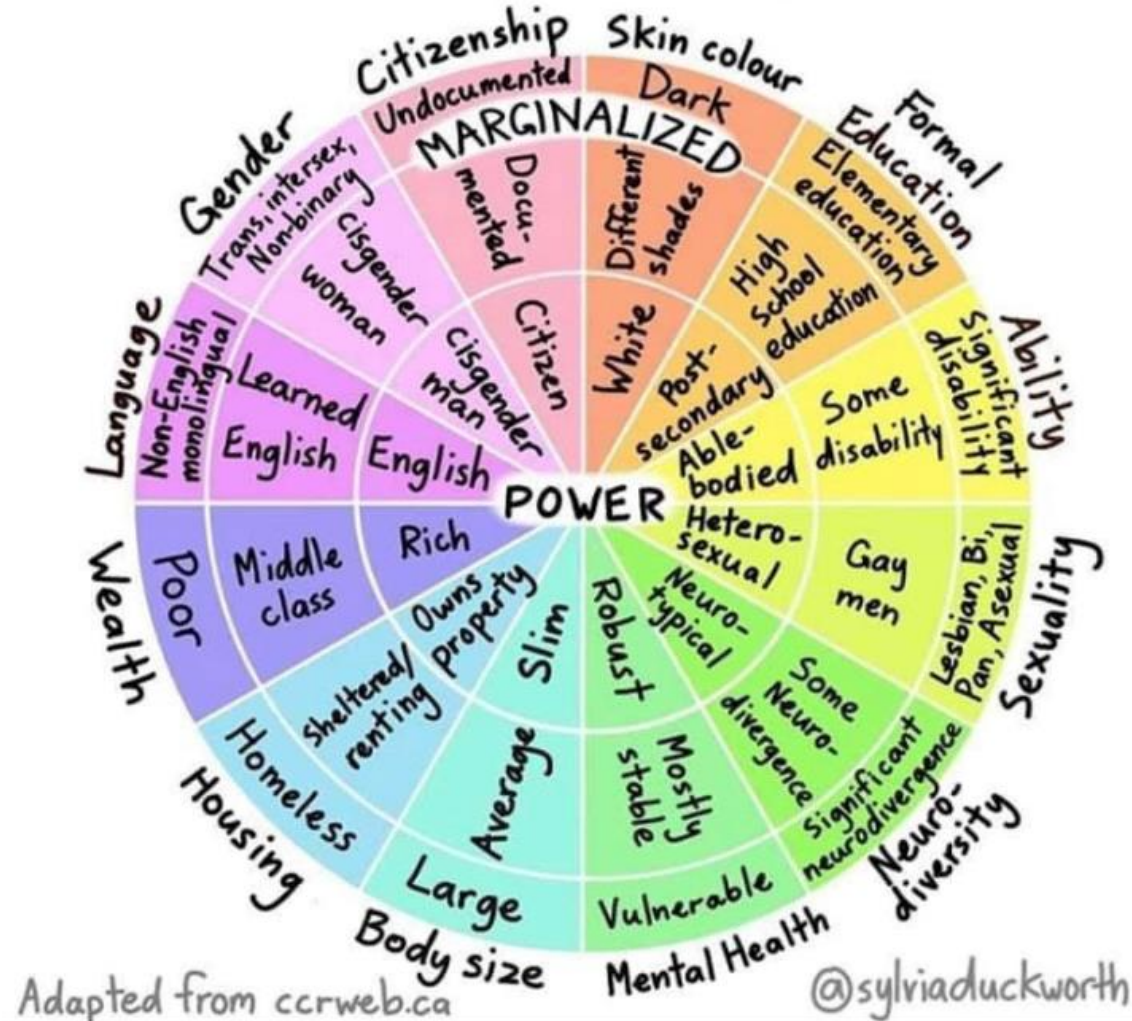 Citizenship
Undocumented
Docu-
mented
Citizen
Skin colour
Dark
Different
shades
White
Formal
Education
Elementary
education
High
school
education
Post-
secondary
Ability
Significant
disability
Some
disability
Able-
bodied
Sexuality
Lesbian, Bi,
Pan, Asexual
Gay
men
Hetero-
sexual
Neuro-
diversity
Significant
neurodivergence
Some
Neuro-
divergence
Neuro-
typical
Mental Health
Vulnerable
Mostly
stable
Robust
Body size
Large
Average
Slim
Housing
Homeless
Sheltered/
renting
Owns
property
Wealth
Poor
Middle
class
Rich
Language
Non-English
monolingual
Learned
English
English
Gender
Trans, intersex,
Non-binary
cisgender
woman
cisgender
man
MARGINALIZED
POWER
Adapted from ccrweb.ca
@sylviaduckworth